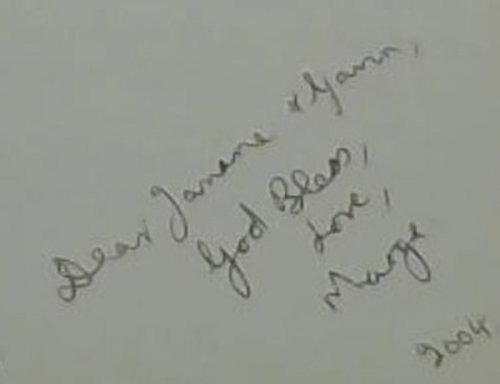 Dear Janene & Gavin,
God Bless,
Love,
Marge
2004